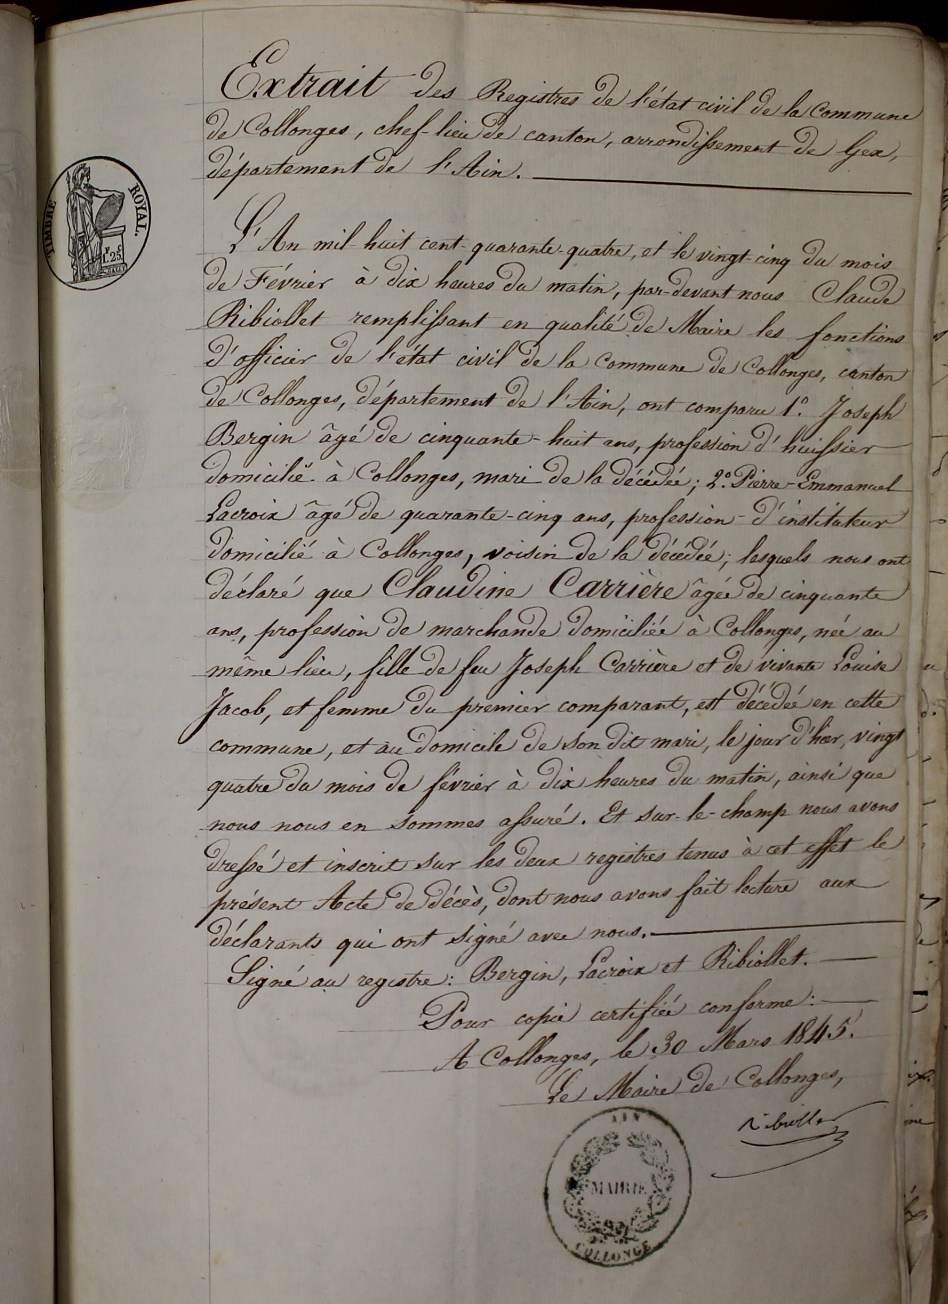 Extrait des Registres de l'état civil de la Commune
de Collonges, chef-lieu de canton, arrondissement de Gex,
département de l'Ain.
TIMBRE ROYAL.
1F.25C
L'An mil-huit cent-quarante-quatre, et le vingt-cinq du mois
de Février à dix heures du matin, par-devant nous Claude
Ribiollet remplissant en qualité de Maire les fonctions
d'officier de l'état civil de la Commune de Collonges, canton
de Collonges, département de l'Ain, ont comparu 1.º Joseph
Bergin âgé de cinquante-huit ans, profession d'huissier
domicilié à Collonges, mari de la décédée; 2.º Pierre-Emmanuel
Lacroix âgé de quarante-cinq ans, profession d'instituteur
domicilié à Collonges, voisin de la décédée; lesquels nous ont
déclaré que Claudine Carrière âgée de cinquante
ans, profession de marchande domiciliée à Collonges, née au
même lieu, fille de feu Joseph Carrière et de vivante Louise
Jacob, et femme du premier comparant, est décédée en cette
commune, et au domicile de son dit mari, le jour d'hier, vingt
quatre du mois de février à dix heures du matin, ainsi que
nous nous en sommes assuré. Et sur-le-champ nous avons
dressé et inscrit sur les deux registres tenus à cet effet le
présent Acte de décès, dont nous avons fait lecture aux
déclarants qui ont signé avec nous.
Signé au registre: Bergin, Lacroix et Ribiollet.
Pour copie certifiée conforme:
A Collonges, le 30 Mars 1845.
Le Maire de Collonges,
Ribiollet
AIN
MAIRIE
COLLONGE